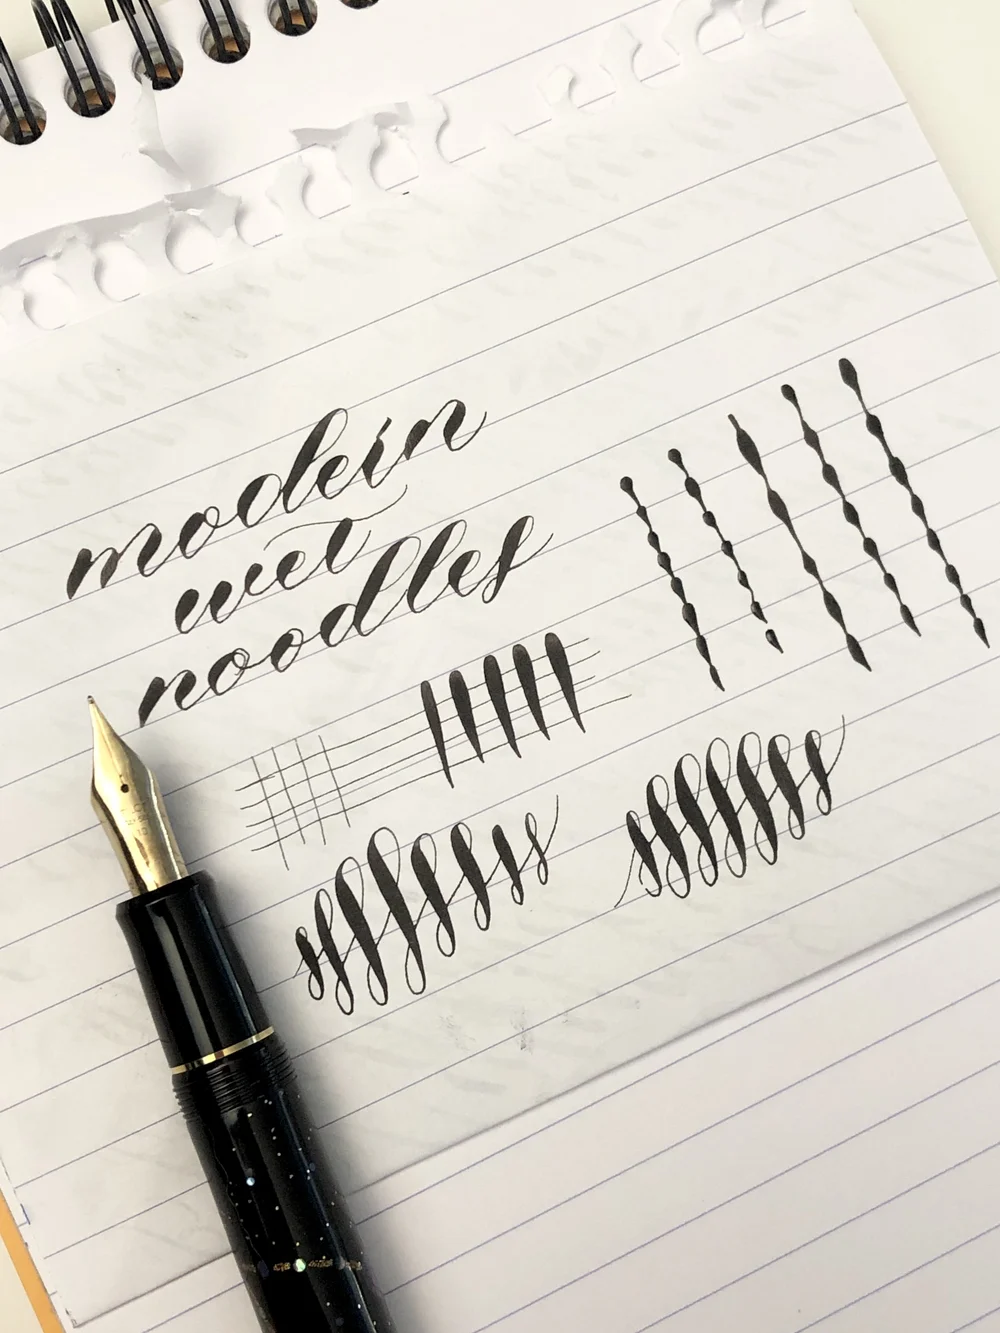 modern
wet
noodles